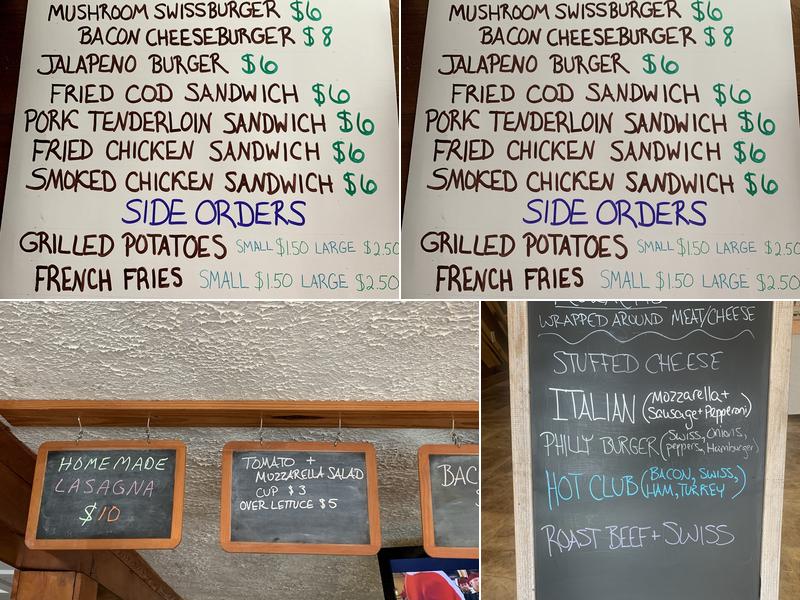 MUSHROOM SWISSBURGER $6
BACON CHEESEBURGER $8
JALAPENO BURGER $6
FRIED COD SANDWICH $6
PORK TENDERLOIN SANDWICH $6
FRIED CHICKEN SANDWICH $6
SMOKED CHICKEN SANDWICH $6
SIDE ORDERS
GRILLED POTATOES SMALL $1.50 LARGE $2.50
FRENCH FRIES SMALL $1.50 LARGE $2.50
MUSHROOM SWISSBURGER $6
BACON CHEESEBURGER $8
JALAPENO BURGER $6
FRIED COD SANDWICH $6
PORK TENDERLOIN SANDWICH $6
FRIED CHICKEN SANDWICH $6
SMOKED CHICKEN SANDWICH $6
SIDE ORDERS
GRILLED POTATOES SMALL $1.50 LARGE $2.50
FRENCH FRIES SMALL $1.50 LARGE $2.50
HOMEMADE
LASAGNA
$10
TOMATO +
MOZZARELLA SALAD
CUP $3
OVER LETTUCE $5
BAC
WRAPPED AROUND MEAT/CHEESE
STUFFED CHEESE
ITALIAN (Mozzarella + Sausage + Pepperoni)
PHILLY BURGER (Swiss, Onions, peppers, Hamburger)
HOT CLUB (BACON, SWISS, HAM, TURKEY)
ROAST BEEF + SWISS